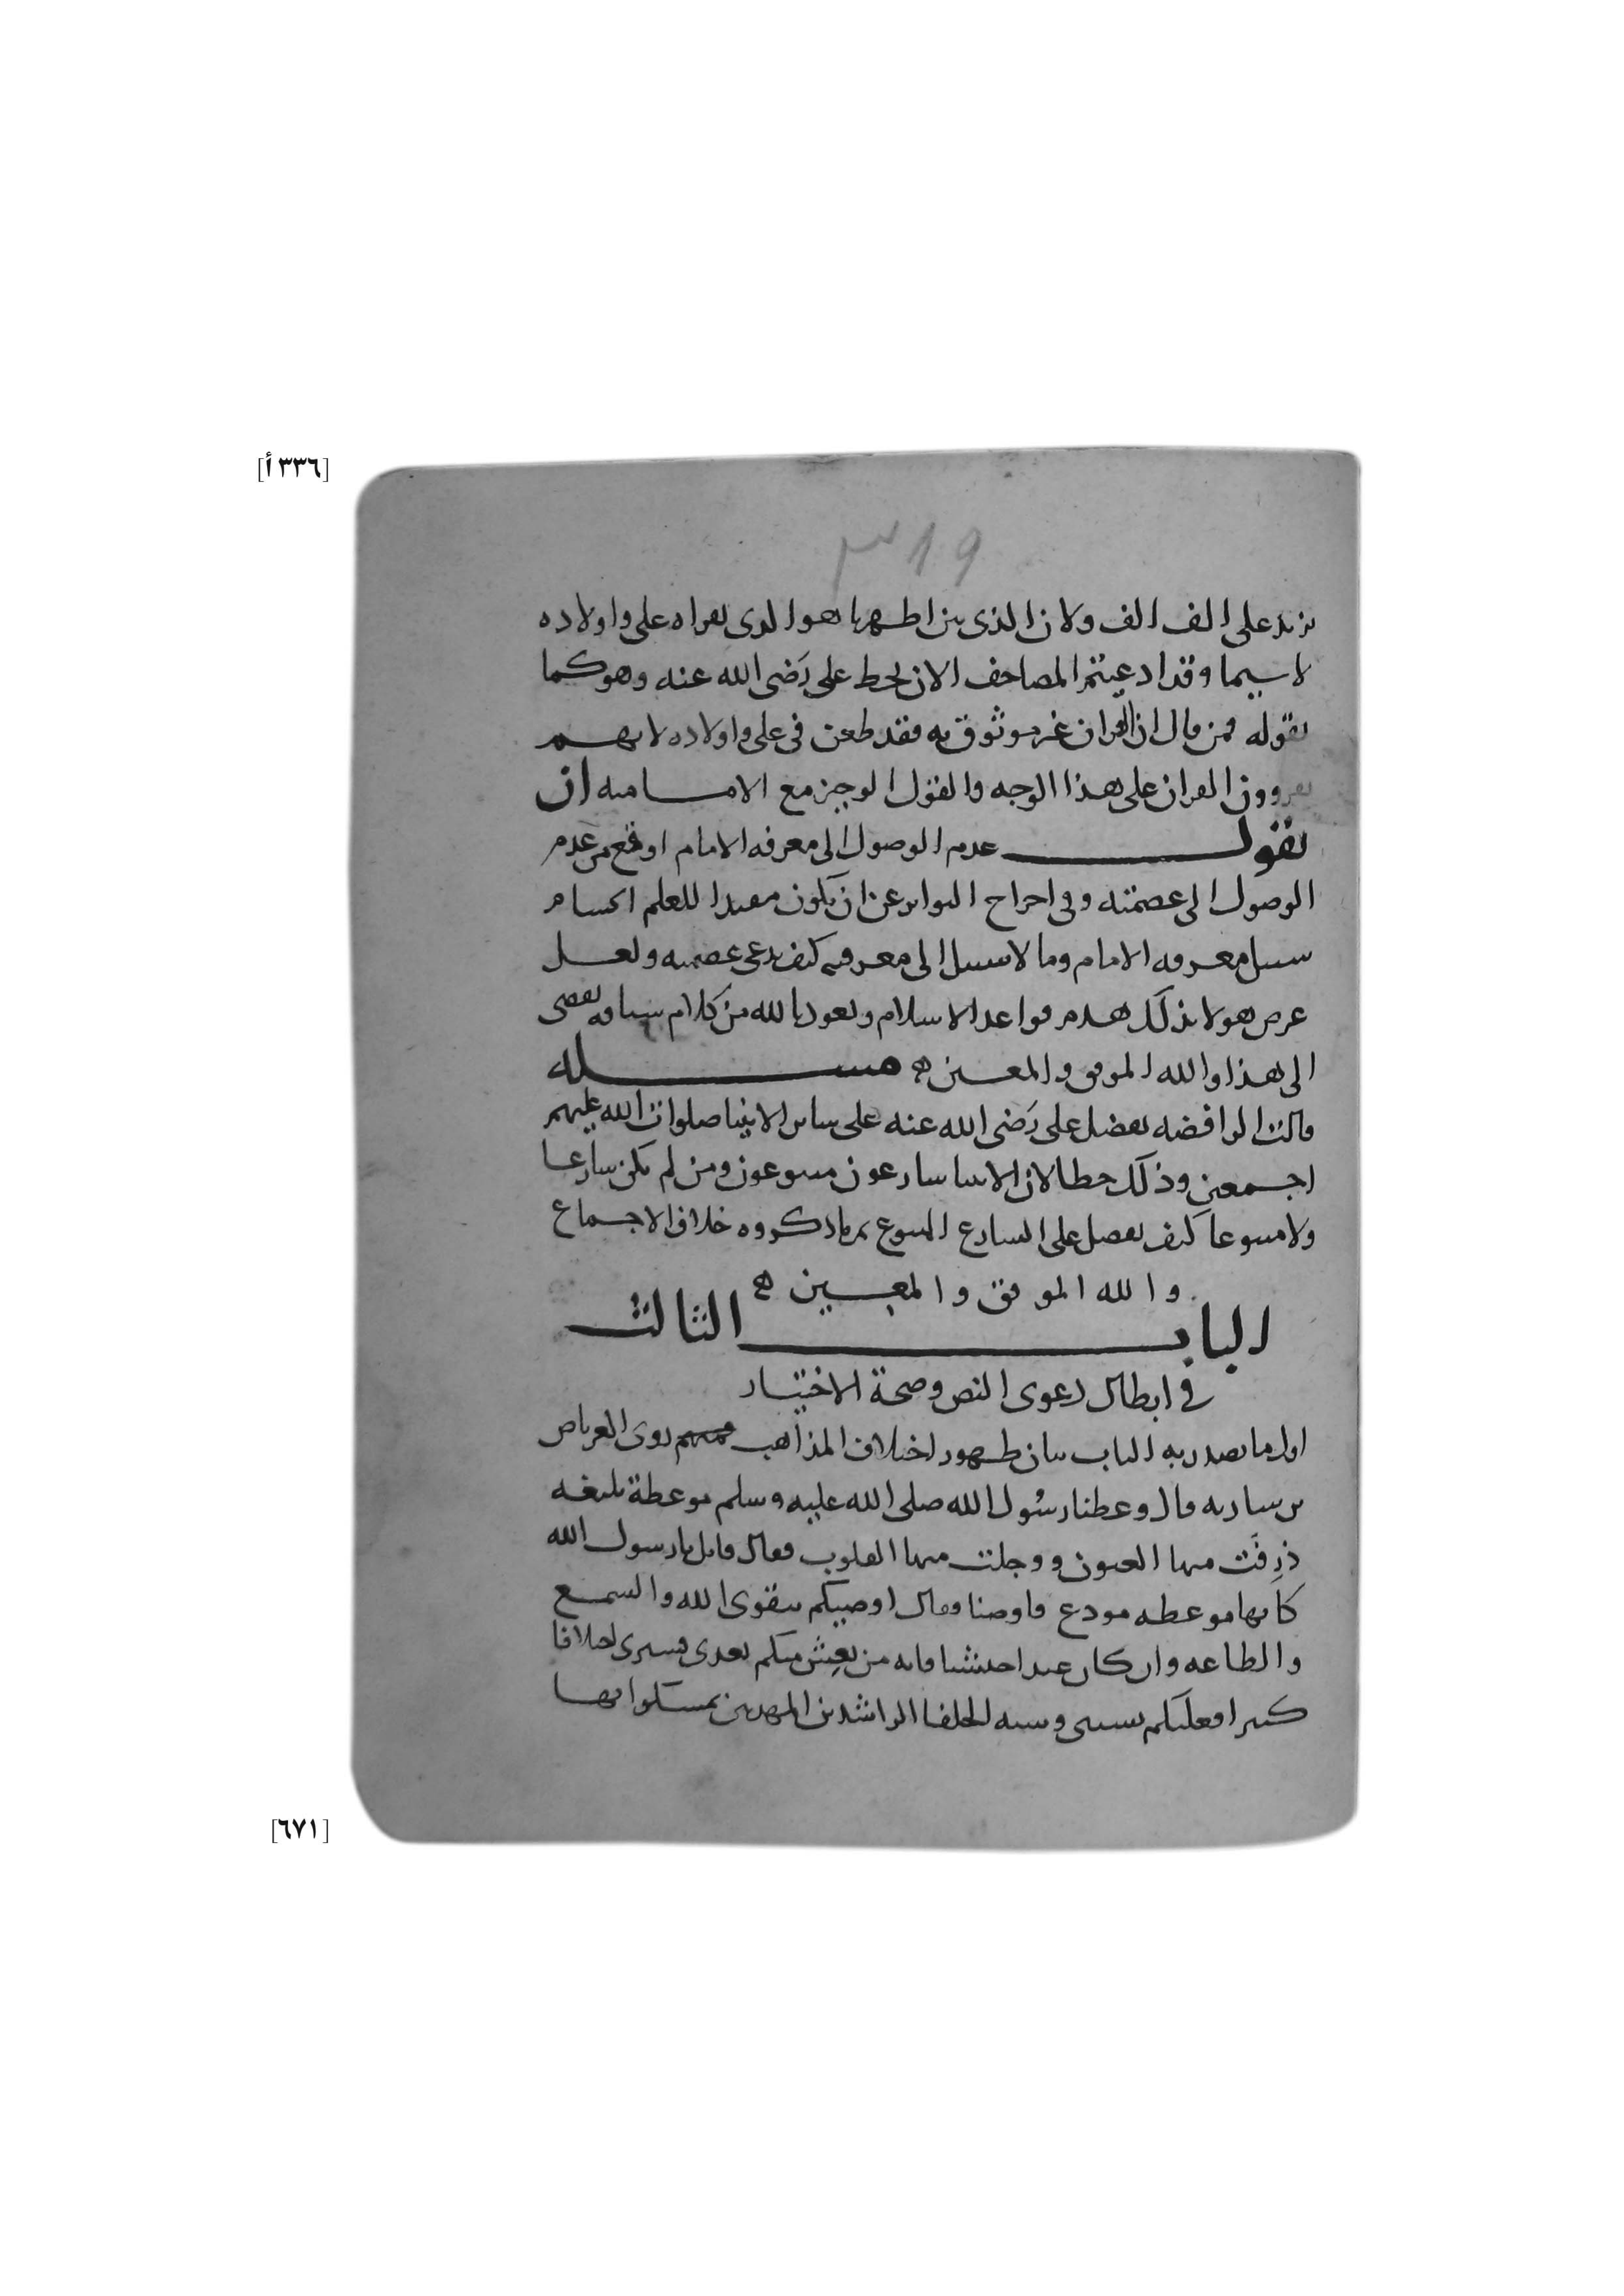 [٣٣٦ أ]
٣١٩
يزيد على الف الف ولان الذى بين اظهرنا هو الذى يقراه على واولاده
لا سيما وقد ادعيتم المصاحف الان بخط على رَضى الله عنه وهو كما
نقوله فمن قال ان القران غير موثوق به فقد طعن فى على واولاده لانهم
يقروون القران على هذا الوجه والقول الوجيز مع الاماميه ان
نقول عدم الوصول الى معرفه الامام اوقع من عدم
الوصول الى عصمته وفى اخراج التواتر عن ان يكون مفيدا للعلم انحسام
سبيل معرفه الامام وما لا سبيل الى معرفته كيف يدعى عصمته ولعل
غرض هولا بذلك هدم قواعد الاسلام ونعوذ بالله من كلام سياقه يفضى
الى هذا والله الموفق والمعين ه مسله
قالت الرافضه بفضل على رَضى الله عنه على ساير الانبيا صلوات الله عليهم
اجمعين وذلك خطا لان الانبيا شارعون متبوعون ومن لم يكن شارعا
ولا متبوعا كيف يفضل على الشارع المتبوع ثم ما ذكروه خلاف الاجماع
والله الموفق والمعين ه
الباب الثالث
فى ابطال دعوى النص وصحة الاختيار
اول ما نصدر به الباب بيان ظهور اختلاف المذاهب روى العرباض
بن ساريه قال وعظنا رسُول الله صلى الله عليه وسلم موعظة بليغه
ذَرِفَت منها العيون ووجلت منها القلوب فقال قايل يا رسول الله
كانها موعظه مودع فاوصنا وقال اوصيكم بتقوى الله والسمع
والطاعه وان كان عبدا حبشيا فانه من يَعِيش منكم بعدى فسيرى اختلافا
كثيرا فعليكم بسنتى وسنه الخلفا الراشدين المهديين تمسكوا بها
[٦٧١]